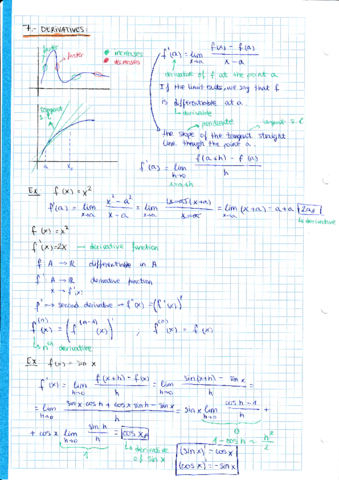 7.- DERIVATIVES:
faster
faster
INCREASES
DECREASES
tangent
s. l.
a
x
f'(a) = lim x→a (f(x) - f(a)) / (x - a)
derivative of f at the point a
If the limit exists, we say that f
is differentiable at a
derivable
pendiente
tangent s. l.
the slope of the tangent straight
line through the point a
f'(a) = lim h→0 (f(a+h) - f(a)) / h
x=a+h
Ex f(x) = x²
f'(a) = lim x→a (x² - a²) / (x - a) = lim x→a (x-a)(x+a) / (x-a) = lim x→a (x+a) = a+a = 2a
derivative
f(x) = x²
f'(x) = 2x → derivative function
f: A → ℝ differentiable in A
f': A → ℝ derivative function
x → f'(x)
f'' → second derivative → f''(x) = (f'(x))'
f⁽ⁿ⁾(x) = (f⁽ⁿ⁻¹⁾(x))' , f⁽⁰⁾(x) = f(x)
nth derivative
Ex f(x) = sin x
f'(x) = lim h→0 (f(x+h) - f(x)) / h = lim h→0 (sin(x+h) - sin x) / h =
= lim h→0 (sin x cos h + cos x sin h - sin x) / h = sin x lim h→0 (cos h - 1) / h +
0
+ cos x lim h→0 sin h / h = cos x
1 - cos h ~ h²/2
1
derivative
of sin x
(sin x)' = cos x
(cos x)' = - sin x